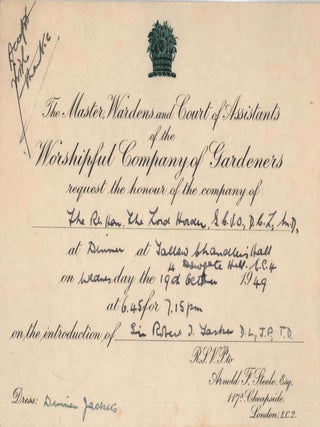 Accept
with
thanks
The Master, Wardens and Court of Assistants
of the
Worshipful Company of Gardeners
request the honour of the company of
The Rt. Hon. The Lord Horder, G.C.V.O, D.C.L, M.D,
at Dinner at Tallow Chandlers Hall
4 Dowgate Hill. E.C.4
on Wednesday the 19th October 1949
at 6.45 for 7.15 pm
on the introduction of Sir Robert I. Tasker D.L, J.P, T.D
R.S.V.P. to
Arnold F. Steele, Esq.
Cheapside,
London, E.C.2.
Dress: Dinner Jackets